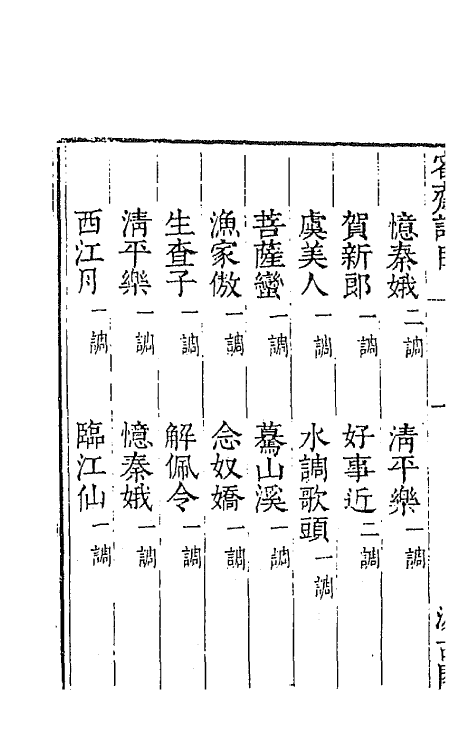 審齋詞目 一 汲古閣
憶秦娥二調 清平樂一調
賀新郎一調 好事近二調
虞美人一調 水調歌頭一調
菩薩蠻一調 驀山溪一調
漁家傲一調 念奴嬌一調
生查子一調 解佩令一調
清平樂一調 憶秦娥一調
西江月一調 臨江仙一調